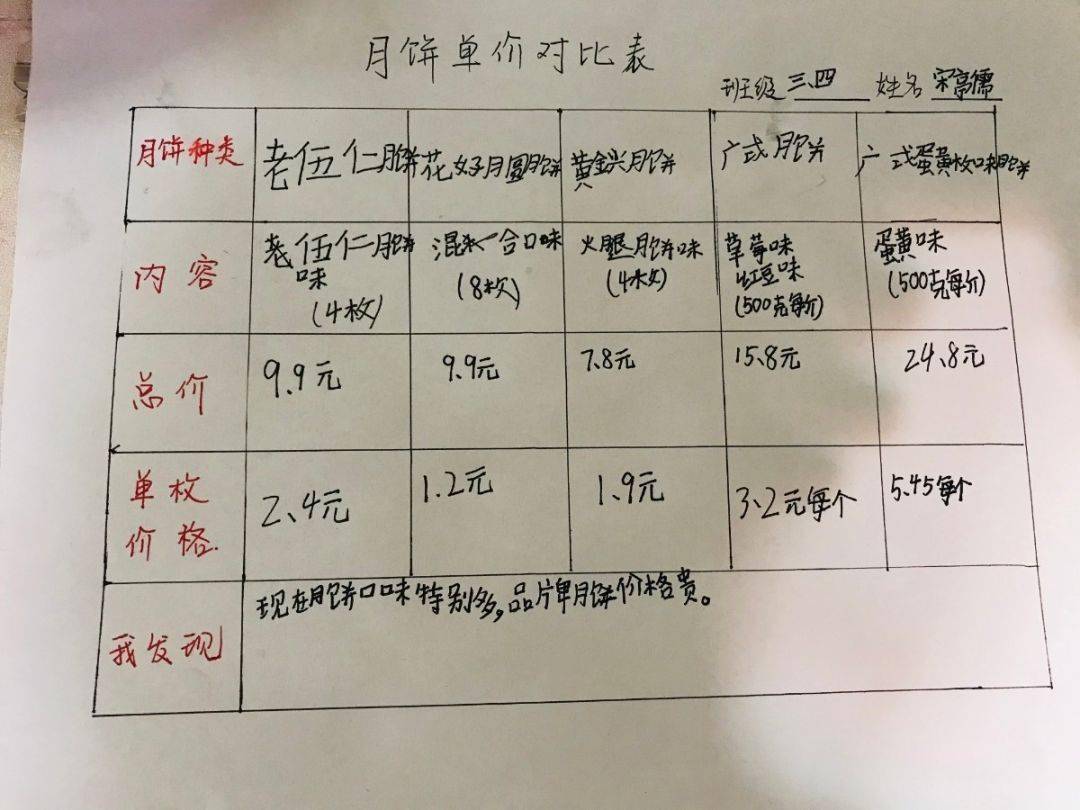 月饼单价对比表
班级 三、四 姓名 宋高儒
月饼种类 老伍仁月饼 花好月圆月饼 黄金兴月饼 广式月饼 广式蛋黄枚味月饼
内容 老伍仁月饼 混合口味 火腿月饼味 草莓味 蛋黄味
味 (8枚) (4枚) 红豆味 (500克每价)
(4枚) (500克每价)
总价 9.9元 9.9元 7.8元 15.8元 24.8元
单枚 2、4元 1.2元 1.9元 3、2元每个 5.45每个
价格.
我发现 现在月饼口味特别多,品牌月饼价格贵。